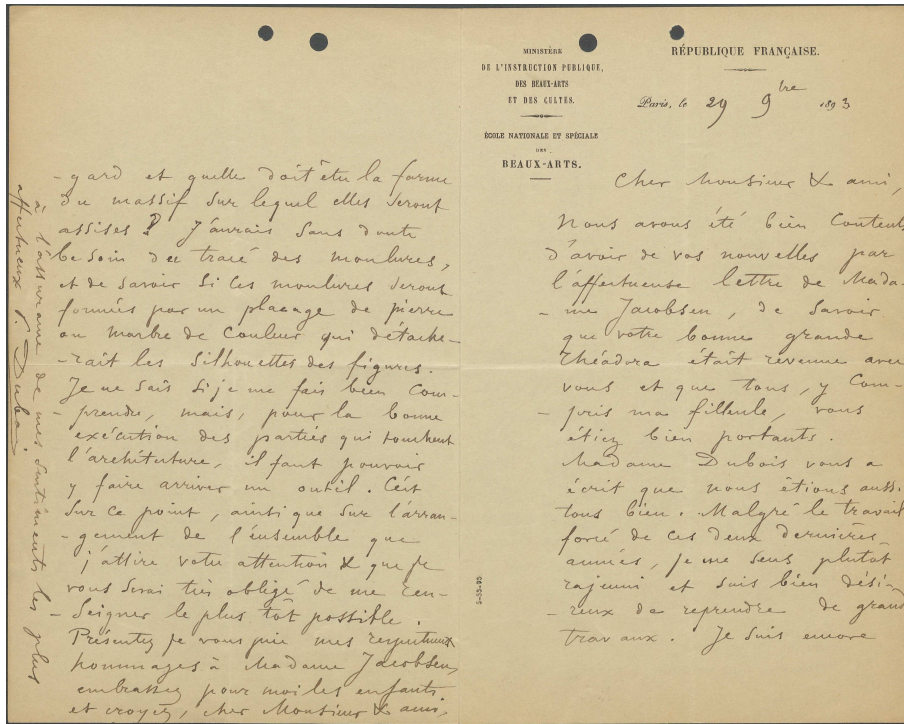 MINISTÈRE
DE L'INSTRUCTION PUBLIQUE,
DES BEAUX-ARTS
ET DES CULTES.
ÉCOLE NATIONALE ET SPÉCIALE
DES
BEAUX-ARTS.
RÉPUBLIQUE FRANÇAISE.
Paris, le 29 9bre 1893
Cher Monsieur & ami,
Nous avons été bien contents
d'avoir de vos nouvelles par
l'affectueuse lettre de Mada-
-me Jacobsen, de savoir
que votre bonne grande
Théodora était revenue avec
vous et que tous, y com-
-pris ma filleule, vous
étiez bien portants.
Madame Dubois vous a
écrit que nous étions aussi
tous bien. Malgré le travail
forcé de ces deux dernières
années, je me sens plutôt
rajeuni et suis bien dési-
-reux de reprendre de grands
travaux. Je suis encore
-gard et quelle doit être la forme
du massif sur lequel elles seront
assises ? J'aurais sans doute
besoin du tracé des moulures,
et de savoir si ces moulures seront
formées par un placage de pierre
ou marbre de couleur qui détache-
-rait les silhouettes des figures.
Je ne sais si je me fais bien com-
-prendre, mais, pour la bonne
exécution des parties qui touchent
l'architecture, il faut pouvoir
y faire arriver un outil. C'est
sur ce point, ainsi que sur l'arran-
-gement de l'ensemble que
j'attire votre attention & que je
vous serai très obligé de me ren-
-seigner le plus tôt possible.
Présentez je vous prie mes respectueux
hommages à Madame Jacobsen,
embrassez pour moi les enfants
et croyez, cher Monsieur & ami,
à l'assurance de mes sentiments les plus
affectueux. P. Dubois